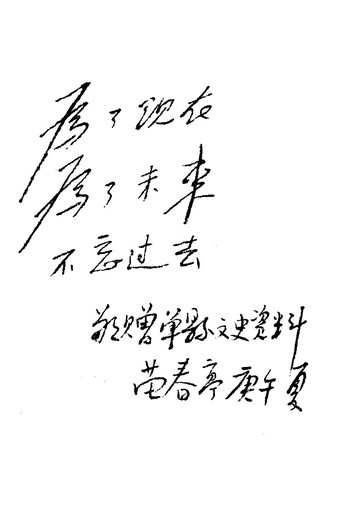 為了现在
為了未来
不忘过去
敬赠单县文史资料
苗春亭庚午夏